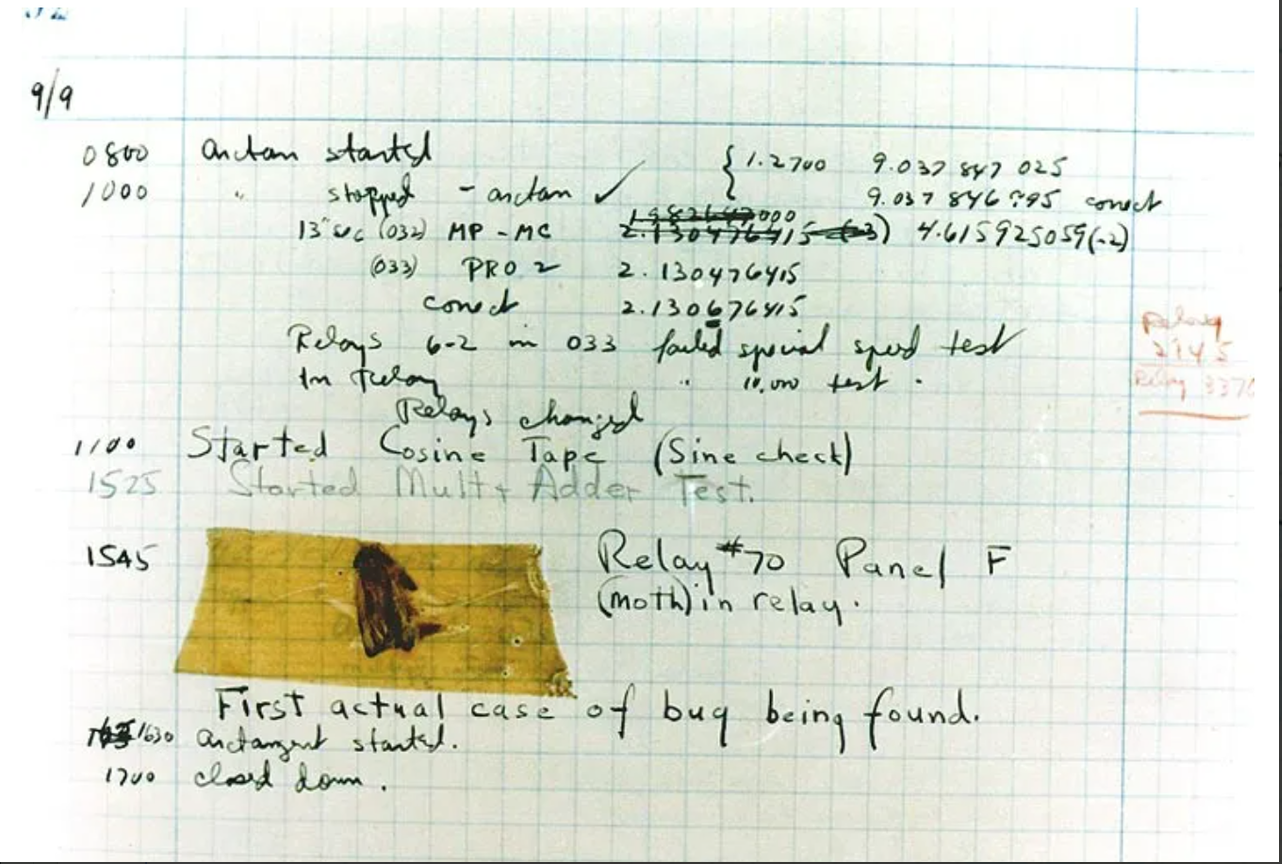 9/9
0800 arctan started { 1.2700 9.037 847 025
1000 " stopped - arctan ✓ 9.037 846 995 correct
000
13" sec (032) MP - MC 2.130476415 (-3) 4.615925059(-2)
(033) PRO 2 2.130476415
correct 2.130676415
Relays 6-2 in 033 failed special speed test
In Relay " 10,000 test .
Relays changed
Relay
2145
Relay 3370
1100 Started Cosine Tape (Sine check)
1525 Started Mult + Adder Test.
1545 Relay #70 Panel F
(moth) in relay.
First actual case of bug being found.
1630 arctangent started.
1700 closed down .